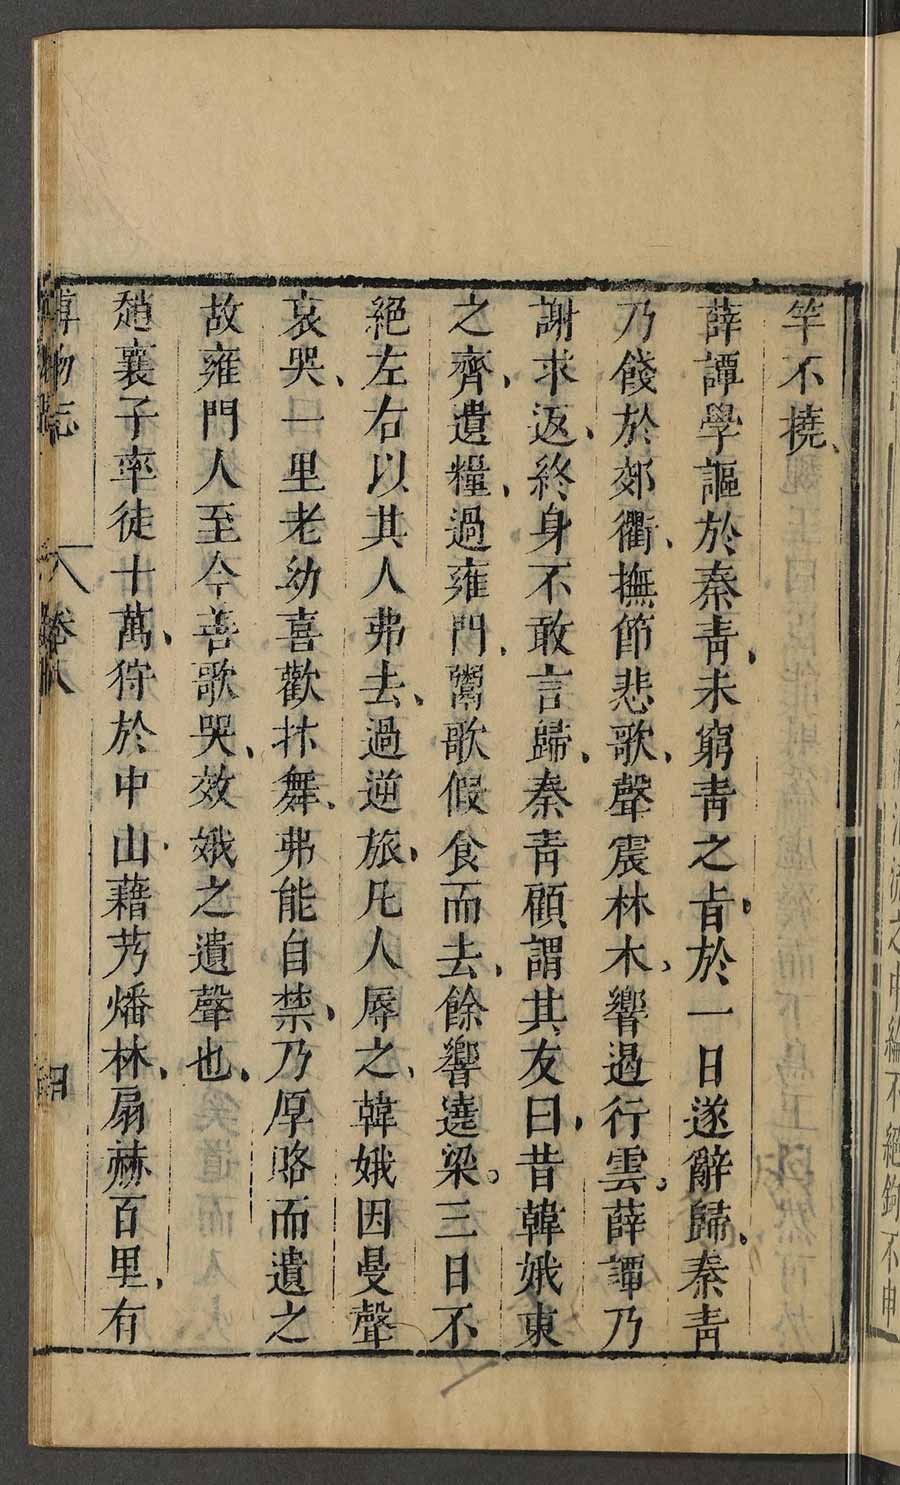 竿不撓、
薛譚學謳於秦青、未窮青之旨、於一日遂辭歸、秦青
乃餞於郊衢、撫節悲歌、聲震林木、響遏行雲。薛譚乃
謝求返、終身不敢言歸、秦青顧謂其友曰、昔韓娥東
之齊、遺糧、過雍門、鬻歌假食而去、餘響遶梁。三日不
絕左右以其人弗去、過逆旅、凡人辱之、韓娥因曼聲
哀哭、一里老幼喜歡抃舞、弗能自禁、乃厚賂而遺之
故雍門人至今善歌哭、效娥之遺聲也、
趙襄子率徒十萬、狩於中山、藉艿燔林、扇赫百里、有
博物志 卷八 四